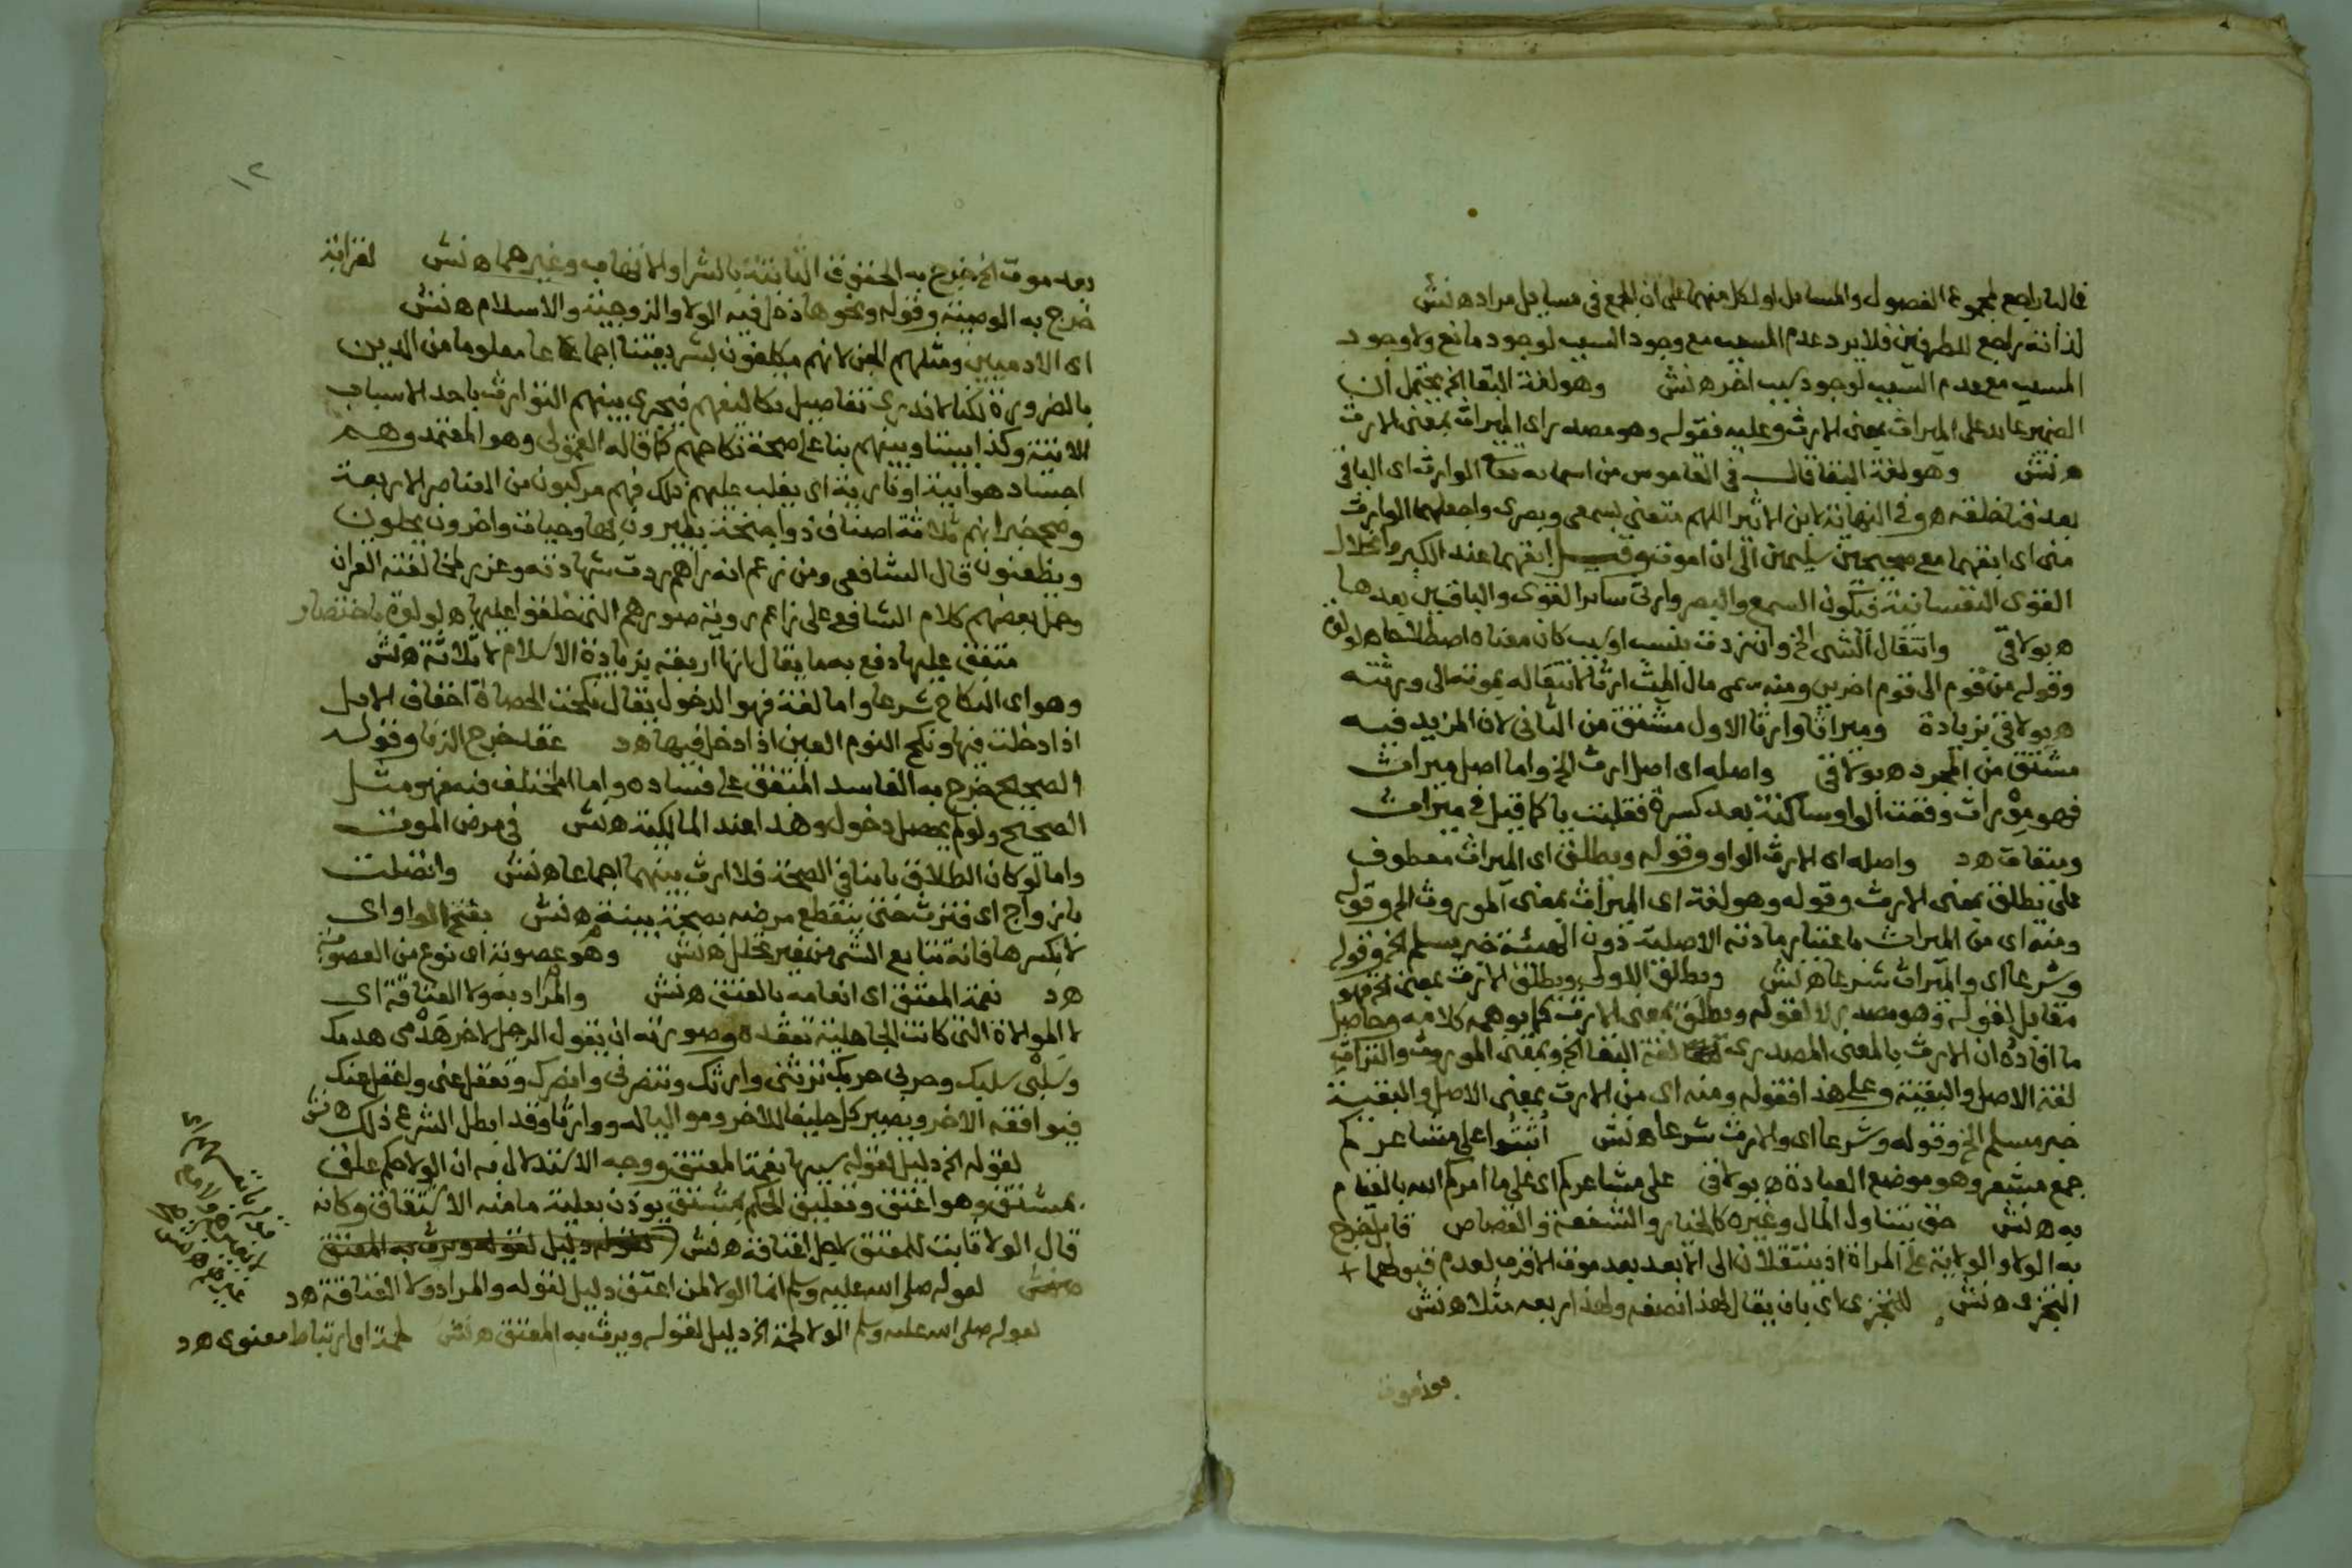 فالباء راجع لمجموع الفصول والمسايل او لكل منهما على ان الجمع في مسايل مراد ه نش
لذاته راجع للطرفين فلا يرد عدم المسبب مع وجود السبب لوجود مانع ولا وجود
المسبب مع عدم السبب لوجود سبب اخر ه نش وهو لغة البقا الخ يحتمل ان
الضمير عايد على الميراث بمعنى الارث وعليه فقوله وهو مصدر اى الميراث بمعنى الارث
ه نش وهو لغة البقا قال في القاموس من اسمايه تعا الوارث اى الباقي
بعد فنا خلقه ه وفي النهاية لابن الاثير اللهم متعنى بسمعى وبصرى واجعلهما الوارث
منى اى ابقهما مع صحيحين سليمين الى ان اموت وقيل ابقهما عند الكبر وانحلال
القوى النفسانية فيكون السمع والبصر وارثى ساير القوى والباقيين بعدها
ه بولاقى وانتقال الشى الخ وان زدت بنسب او سبب كان معناه اصطلاحا ه لولوة
وقوله من قوم الى قوم اخرين ومنه سمى مال الميت ارثا لانتقاله بموته الى ورثته
ه بولاقى بزيادة وميراثا وارثا الاول مشتق من الثانى لان المزيد فيه
مشتق من المجرد ه بولاقى واصله اى اصل ارث الخ واما اصل ميراث
فهو مِوْراث وقعت الواو ساكنة بعد كسرة فقلبت يا كما قيل في ميزان
وميقات ه د واصله اى الارث الواو وقوله ويطلق اى الميراث معطوف
على يطلق بمعنى الارث وقوله وهو لغة اى الميراث بمعنى الموروث الخ وقوله
ومنه اى من الميراث باعتبار مادته الاصلية دون الهيئة خبر مسلم الخ وقوله
وشرعا اى والميراث شرعا ه نش ويطلق الاول ويطلق الارث بمعنى الخ فهو
مقابل لقوله وهو مصدر لا لقوله ويطلق بمعنى الارث كما يوهمه كلامه وحاصل
ما افاده ان الارث بالمعنى المصدرى لغة البقا الخ وبمعنى الموروث والتراث
لغة الاصل والبقية وعلى هذا فقوله ومنه اى من الارث بمعنى الاصل والبقية
خبر مسلم الخ وقوله وشرعا اى والارث شرعا ه نش اثبتوا على مشاعركم
جمع مشعر وهو موضع العبادة ه بولاقى على مشاعركم اى على ما امركم الله بالقيام
به ه نش حق يتناول المال وغيره كالخيار والشفعة والقصاص قابل خرج
به الولا والولاية على المراة اذ ينتقلان الى الابعد بعد موت الاقرب لعدم قبولهما +
التجزى ه نش للتجزى اى بان يقال لهذا نصفه ولهذا ربعه مثلا ه نش
بعد موت
١٢
بعد موت الخ خرج به الحقوق الثابتة بالشرا والاتهاب وغيرهما ه نش لقرابة
خرج به الوصية وقوله ونحوها دخل فيه الولا والزوجية والاسلام ه نش
اى الادميين ومثلهم الجن لانهم مكلفون بشريعتنا اجماعا معلوما من الدين
بالضرورة لكنا لا ندرى تفاصيل تكاليفهم فيجرى بينهم التوارث باحد الاسباب
الاتية وكذا بيننا وبينهم بنا على صحة نكاحهم كما قاله القمولى وهو المعتمد وهم
اجساد هوايية او نارية اى يغلب عليهم ذلك فهم مركبون من العناصر الاربعة
وصح خبر انهم ثلاثة اصناف ذوا اجنحة يطيرون بها وحيات واخرون يحلون
ويظعنون قال الشافعى ومن زعم انه راهم ردت شهادته وعزر لمخالفته القران
وحمل بعضهم كلام الشافعى على زاعم روية صورهم التى خلقوا عليها ه لولوة باختصار
متفق عليها دفع به ما يقال انها اربعة بزيادة الاسلام لا ثلاثة ه نش
وهو اى النكاح شرعا واما لغة فهو الدخول يقال نكحت الحصاة اخفاف الابل
اذا دخلت فيها ونكح النوم العين اذا دخل فيها ه د عقد خرج الزنا وقوله
الصحيح خرج به الفاسد المتفق على فساده واما المختلف فيه فهو مثل
الصحيح ولو لم يحصل دخول وهذا عند المالكية ه نش في مرض الموت
واما لو كان الطلاق باينا في الصحة فلا ارث بينهما اجماعا ه نش واتصلت
بازواج اى فترث حتى ينقطع مرضه بصحة بينة ه نش بفتح الواو اى
لا بكسرها فانه تتابع الشى من غير تخلل ه نش وهو عصوبة اى نوع من العصوبة
ه د نعمة المعتق اى انعامه بالعتق ه نش والمراد به ولا العتاقة اى
لا الموالاة التى كانت الجاهلية تعقده وصورته ان يقول الرجل لاخر هَدْمى هدمك
وسلمى سلمك وحربى حربك ترثنى وارثك وتنصرنى وانصرك وتعقل عنى واعقل عنك
فيوافقه الاخر ويصير كل حليفا للاخر ومواليا له ووارثا وقد ابطل الشرع ذلك ه نش
لقوله الخ دليل لقوله سببها نعمة المعتق ووجه الاستدلال به ان الولا حكم علق
بمشتق وهو اعتق وتعليق الحكم بمشتق يوذن بعلية ما منه الاشتقاق وكانه
قال الولا ثابت للمعتق لاجل اعتاقه ه نش لقوله دليل لقوله ويرث به المعتق
لقوله صلى الله عليه وسلم انما الولا لمن اعتق دليل لقوله والمراد ولا العتاقة ه د
لقوله صلى الله عليه وسلم الولا لحمة الخ دليل لقوله ويرث به المعتق ه نش لحمة اى ارتباط معنوى ه د